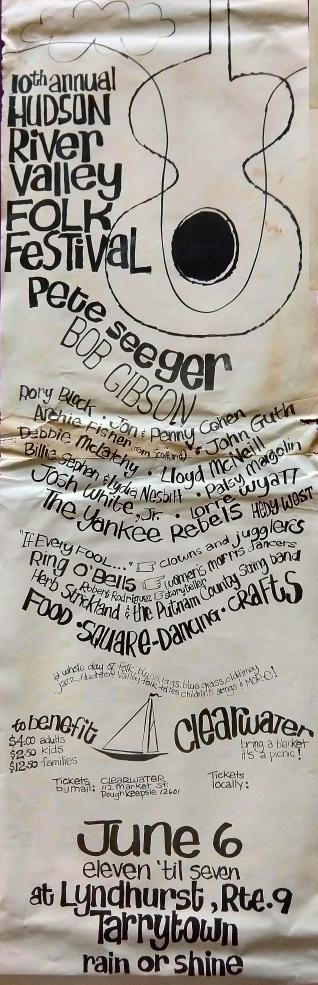 10th annual
HUDSON
River
Valley
FOLK
FeSTIVAL
Pete Seeger
BOB GIBSON
Rory Block • Jon & Penny Cohen
Archie Fisher (from Scotland) • John Guth
Debbie McClatchy • Lloyd McNeill
Billie Stephen & Lydia Nesbitt • Patsy Margolin
Josh White, Jr. • Lorre Wyatt
The Yankee Rebels Hedy West
"If Every Fool..." clowns and jugglers
Ring O'Bells women's morris dancers
Robert Rodriguez storyteller
Herb Strickland & the Putnam County string band
FOOD • SQUARE-DANCING • CRAFTS
a whole day of folk, blues, rags, blue grass, oldtimey
jazz, Hudson Valley folk tales, children's songs & MORE!
to benefit Clearwater
$4.00 adults
$2.50 kids
$12.50 families
bring a blanket
it's a picnic!
Tickets by mail: CLEARWATER
112 Market St.
Poughkeepsie 12601
Tickets
locally:
June 6
eleven 'til seven
at Lyndhurst, Rte. 9
Tarrytown
rain or shine